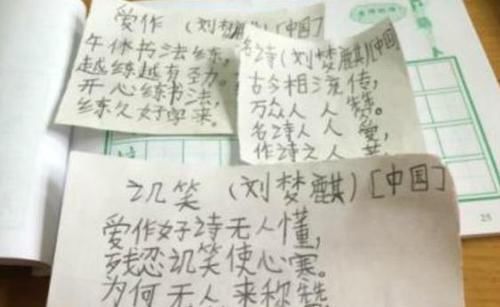 爱作（刘梦麒）[中国]
午休书法练，
越练越有劲。
开心练书法，
练久好字来。
名诗（刘梦麒）[中国
古今相流传，
万众人人赞。
名诗人人爱，
作诗之人
讥笑（刘梦麒）[中国]
爱作好诗无人懂，
残忍讥笑使心寒。
为何无人来称赞
25